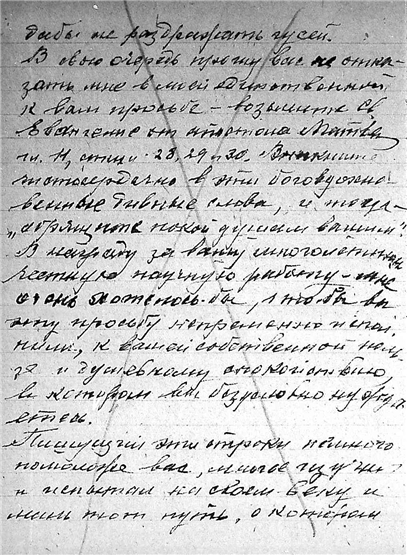 дабы не раздражать гусей.
В свою очередь прошу вас не отка-
зать мне в моей единственной
к вам просьбе – возьмите Св
Евангелие от апостола Матвея
гл. 11, стихи 28, 29 и 30. Вникните
чистосердечно в эти боговдохно-
венные дивные слова, и тогда -
"обрящите покой душам вашим".
В награду за вашу многолетнюю
честную научную работу - мне
очень хотелось-бы, чтобы вы
эту просьбу непременно испол-
нили, к вашей собственной поль-
зе и душевному спокойствию
в котором вы безусловно нужда-
етесь.
Пишущий эти строки немного
помоложе вас, многое изучил
и испытал на своем веку и
лишь тот путь, о котором